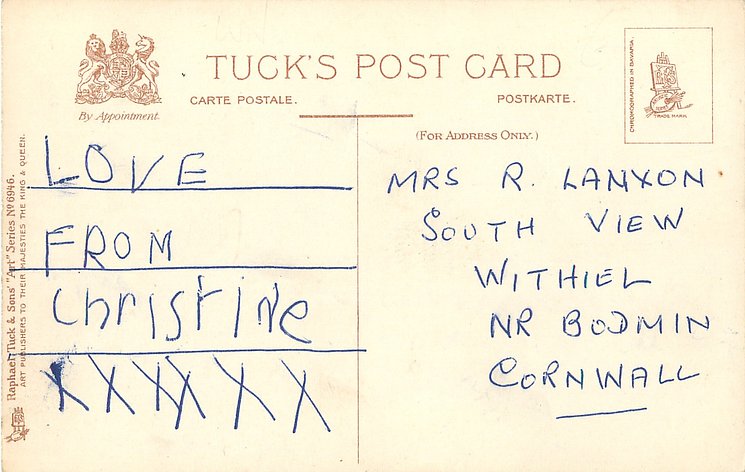 TUCK'S POST CARD
CARTE POSTALE.
POSTKARTE.
By Appointment.
(FOR ADDRESS ONLY.)
CHROMOGRAPHED IN BAVARIA.
TRADE MARK.
Raphael Tuck & Sons' "Art" Series Nº 6946.
ART PUBLISHERS TO THEIR MAJESTIES THE KING & QUEEN.
LOVE
FROM
Christine
XXXXXX
MRS R. LANYON
SOUTH VIEW
WITHIEL
NR BODMIN
CORNWALL